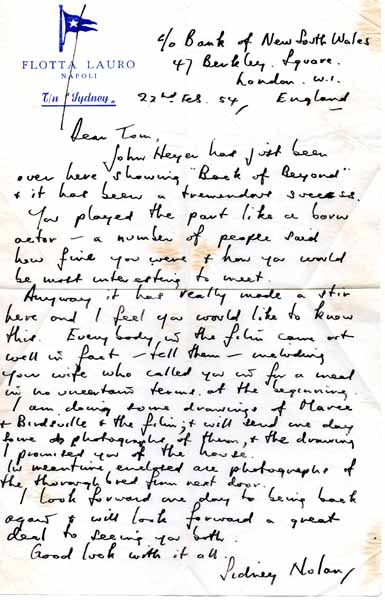 FLOTTA LAURO
NAPOLI
T/n "Sydney"
c/o Bank of New South Wales
47 Berkley Square.
London. W.1.
22nd Feb. 54, England
Dear Tom,
John Heyer has just been
over here showing "Back of Beyond"
& it has been a tremendous success.
You played the part like a born
actor — a number of people said
how fine you were & how you would
be most interesting to meet.
Anyway it has really made a stir
here and I feel you would like to know
this. Everybody in the film came out
well in fact — tell them — including
your wife who called you in for a meal
in no uncertain terms at the beginning.
I am doing some drawings of Maree
& Birdsville & the film; & will send one day
some photographs of them, & the drawing
I promised you of the house.
In meantime, enclosed are photographs of
the thoroughbred from next door.
I look forward one day to being back
again & will look forward a great
deal to seeing you both.
Good luck with it all.
Sidney Nolan